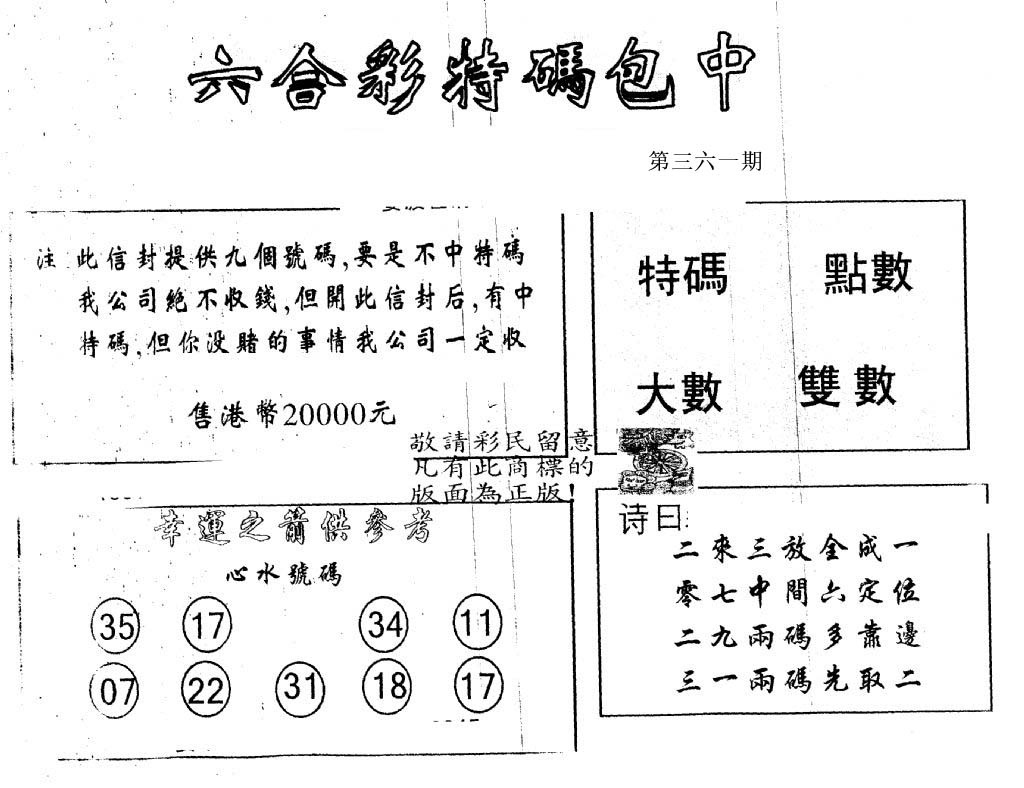 六合彩特碼包中
第三六一期
注 此信封提供九個號碼,要是不中特碼
我公司絕不收錢,但開此信封后,有中
特碼,但你没賭的事情我公司一定收
售港幣20000元
特碼 點數
大數 雙數
敬請彩民留意
凡有此商標的
版面為正版!
幸運之箭供參考
心水號碼
35 17 34 11
07 22 31 18 17
诗曰:
二來三放全成一
零七中間六定位
二九兩碼多靠邊
三一兩碼先取二